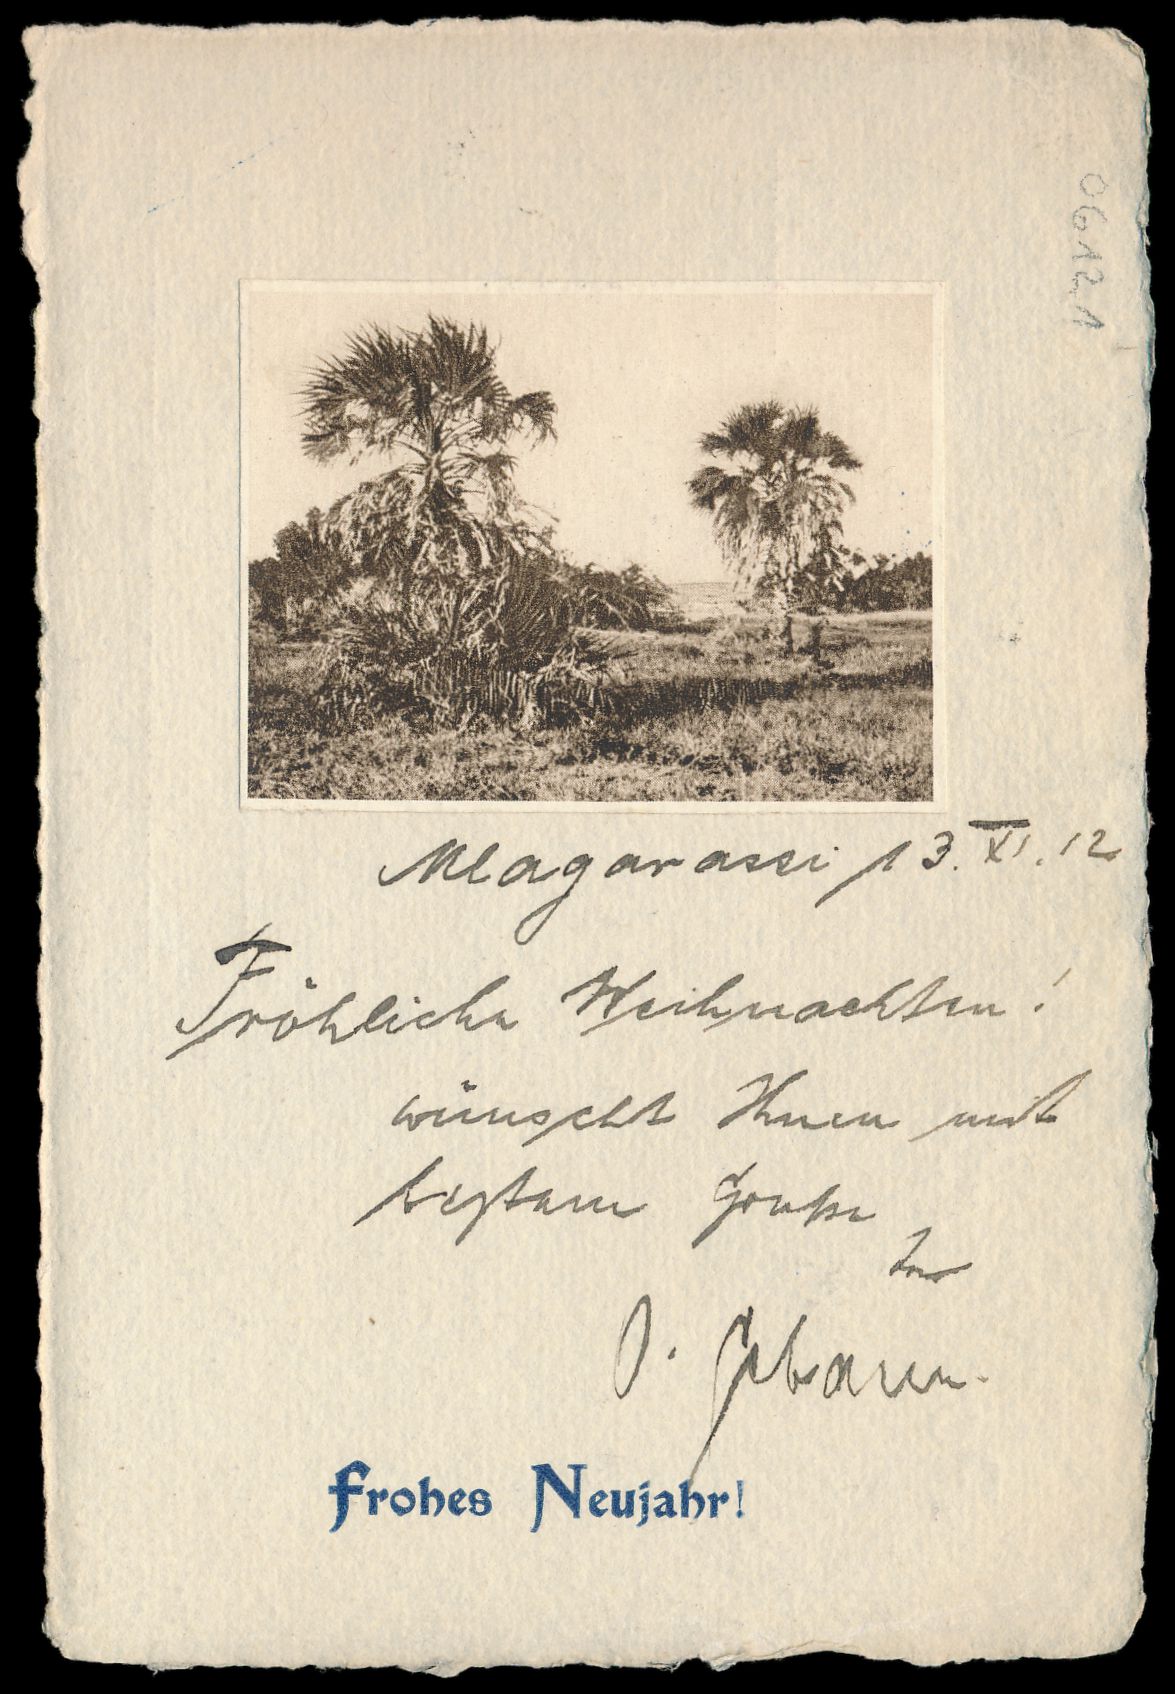 06121
Mlagarassi 13. XI. 12
Fröhliche Weihnachten!
wünscht Ihnen mit
bestem Gruße
Ihr
Frohes Neujahr!